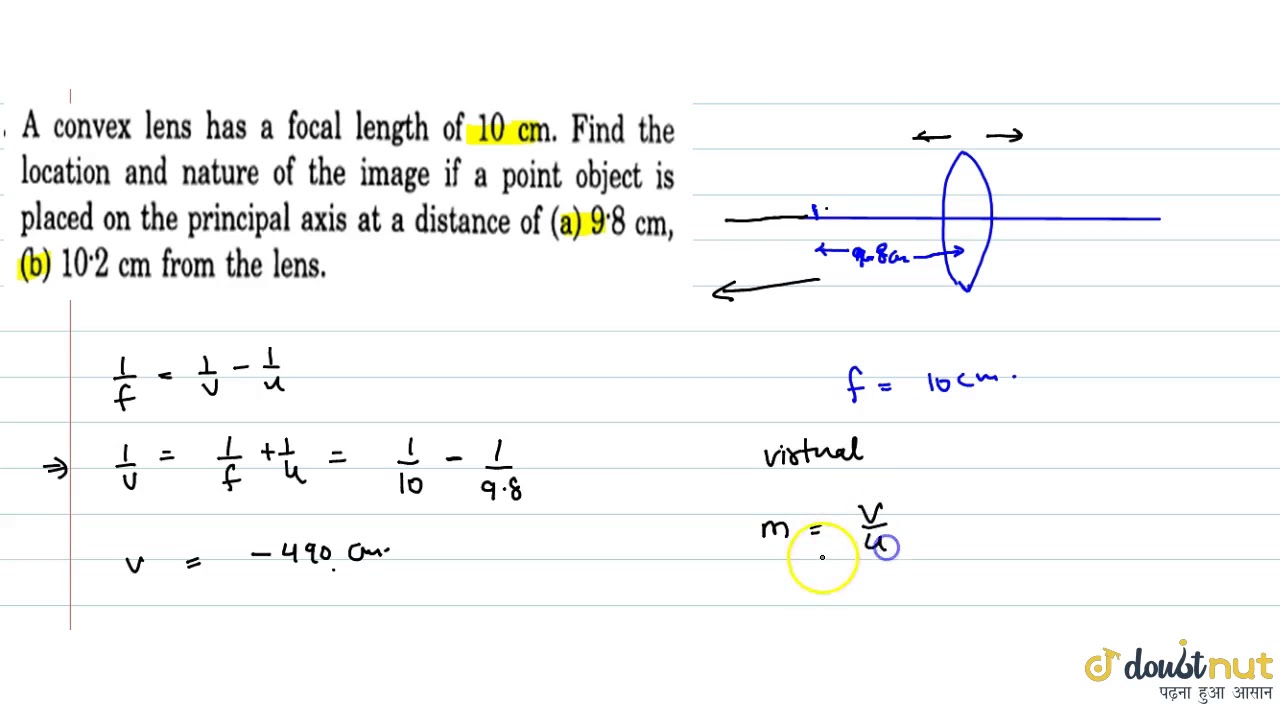 A convex lens has a focal length of 10 cm. Find the
location and nature of the image if a point object is
placed on the principal axis at a distance of (a) 9·8 cm,
(b) 10·2 cm from the lens.
9.8cm
1/f = 1/v - 1/u
f = 10cm.
⇒ 1/v = 1/f + 1/u = 1/10 - 1/9.8
virtual
m = v/u
v = -490 cm.
doubtnut
पढ़ना हुआ आसान